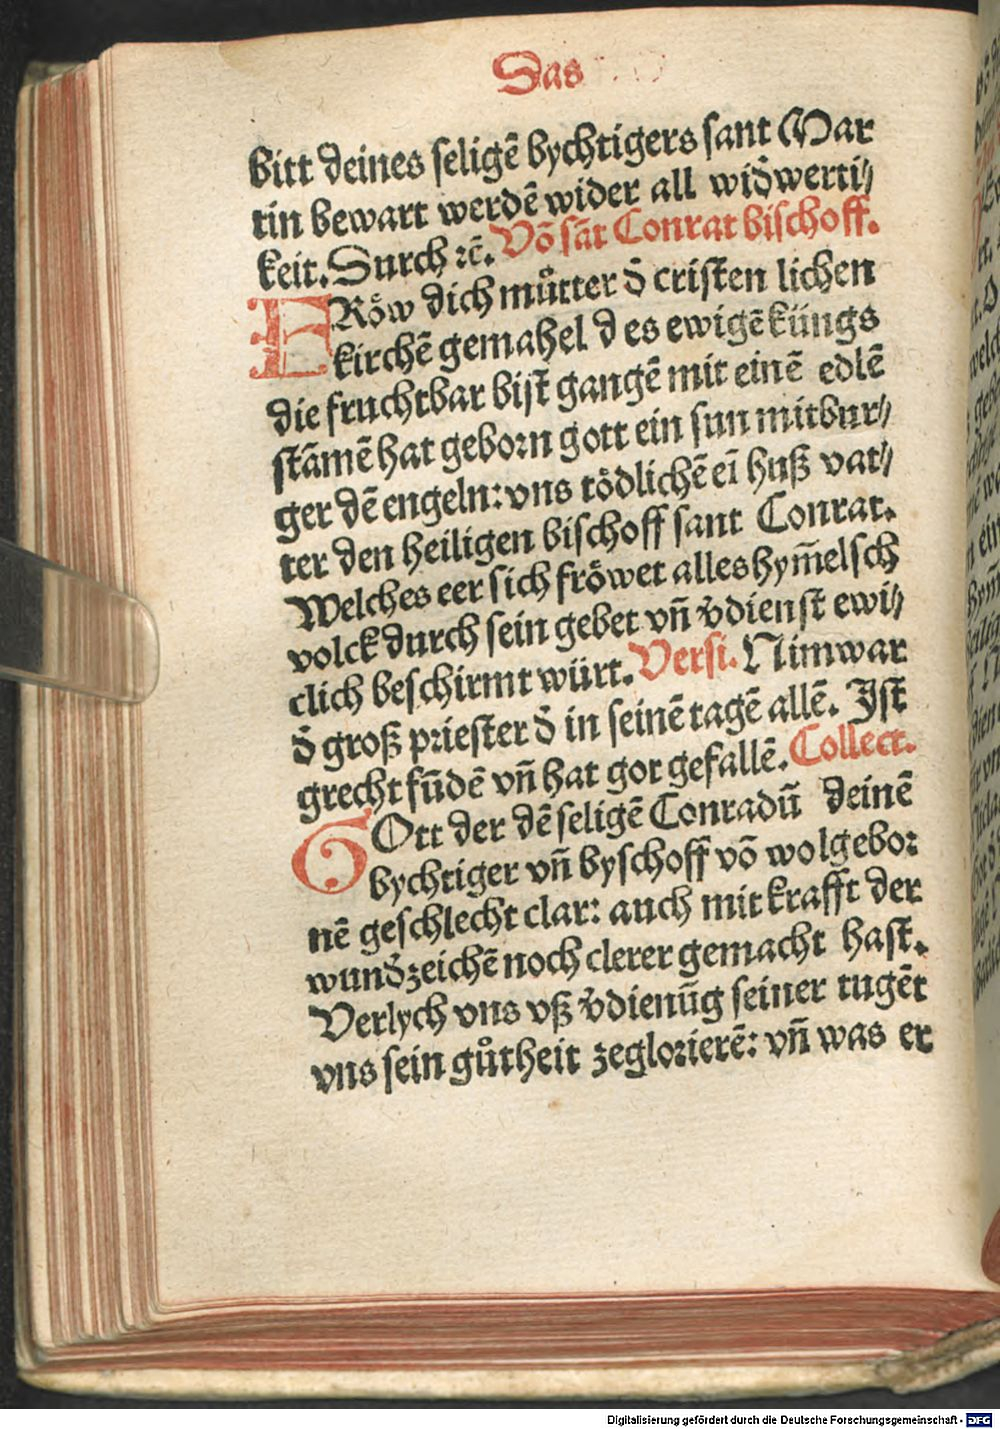 Das
bitt deines seligē bychtigers sant Mar
tin bewart werdē wider all wid̄werti⸗
keit. Durch ꝛē. Vō sāt Conrat bischoff.
FRöw dich můtter d̄ cristen lichen
kirchē gemahel d es ewigē küngs
die fruchtbar bist gangē mit einē edlē
stāmē hat geborn gott ein sun mitbur⸗
ger dē engeln: vns tödlichē eī huß vat⸗
ter den heiligen bischoff sant Conrat.
Welches eer sich fröwet alles hym̄elsch
volck durch sein gebet vn̄ v̄dienst ewi⸗
clich beschirmt würt. Versi. Nim war
d̄ groß priester d̄ in seinē tagē allē. Ist
grecht fūdē vn̄ hat got gefallē. Collect.
GOtt der dē seligē Conradū deinē
bychtiger vn̄ byschoff vō wolgebor
nē geschlecht clar: auch mit krafft der
wund̄zeichē noch clerer gemacht hast.
Verlych vns vß v̄dienūg seiner tugēt
vns sein gůtheit zeglorierē: vn̄ was er
Digitalisierung gefördert durch die Deutsche Forschungsgemeinschaft - DFG